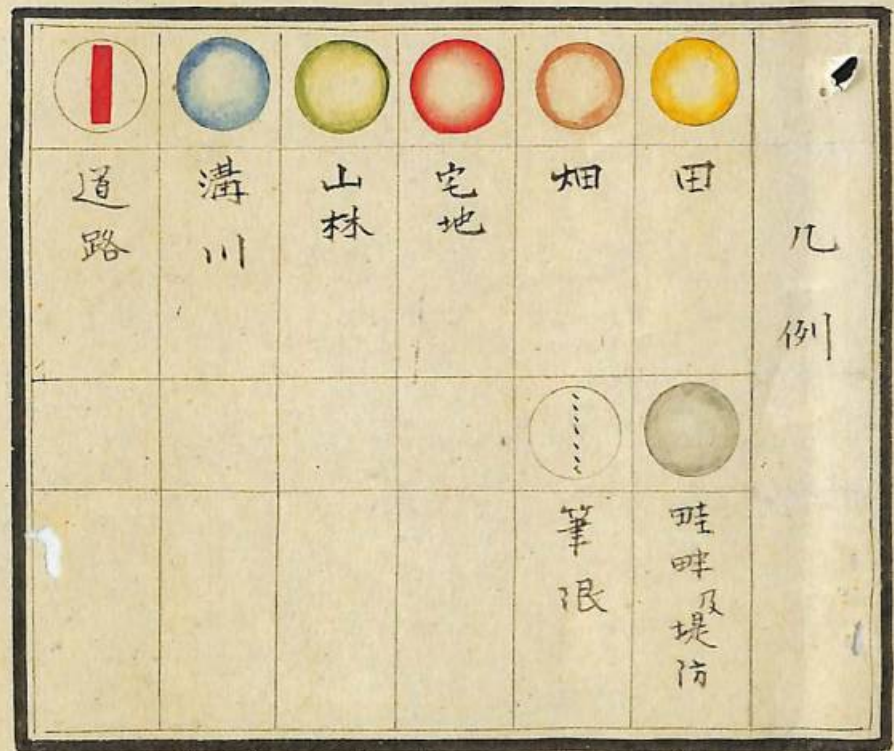 凡例
田
畑
宅地
山林
溝川
道路
畦畔及堤防
筆限